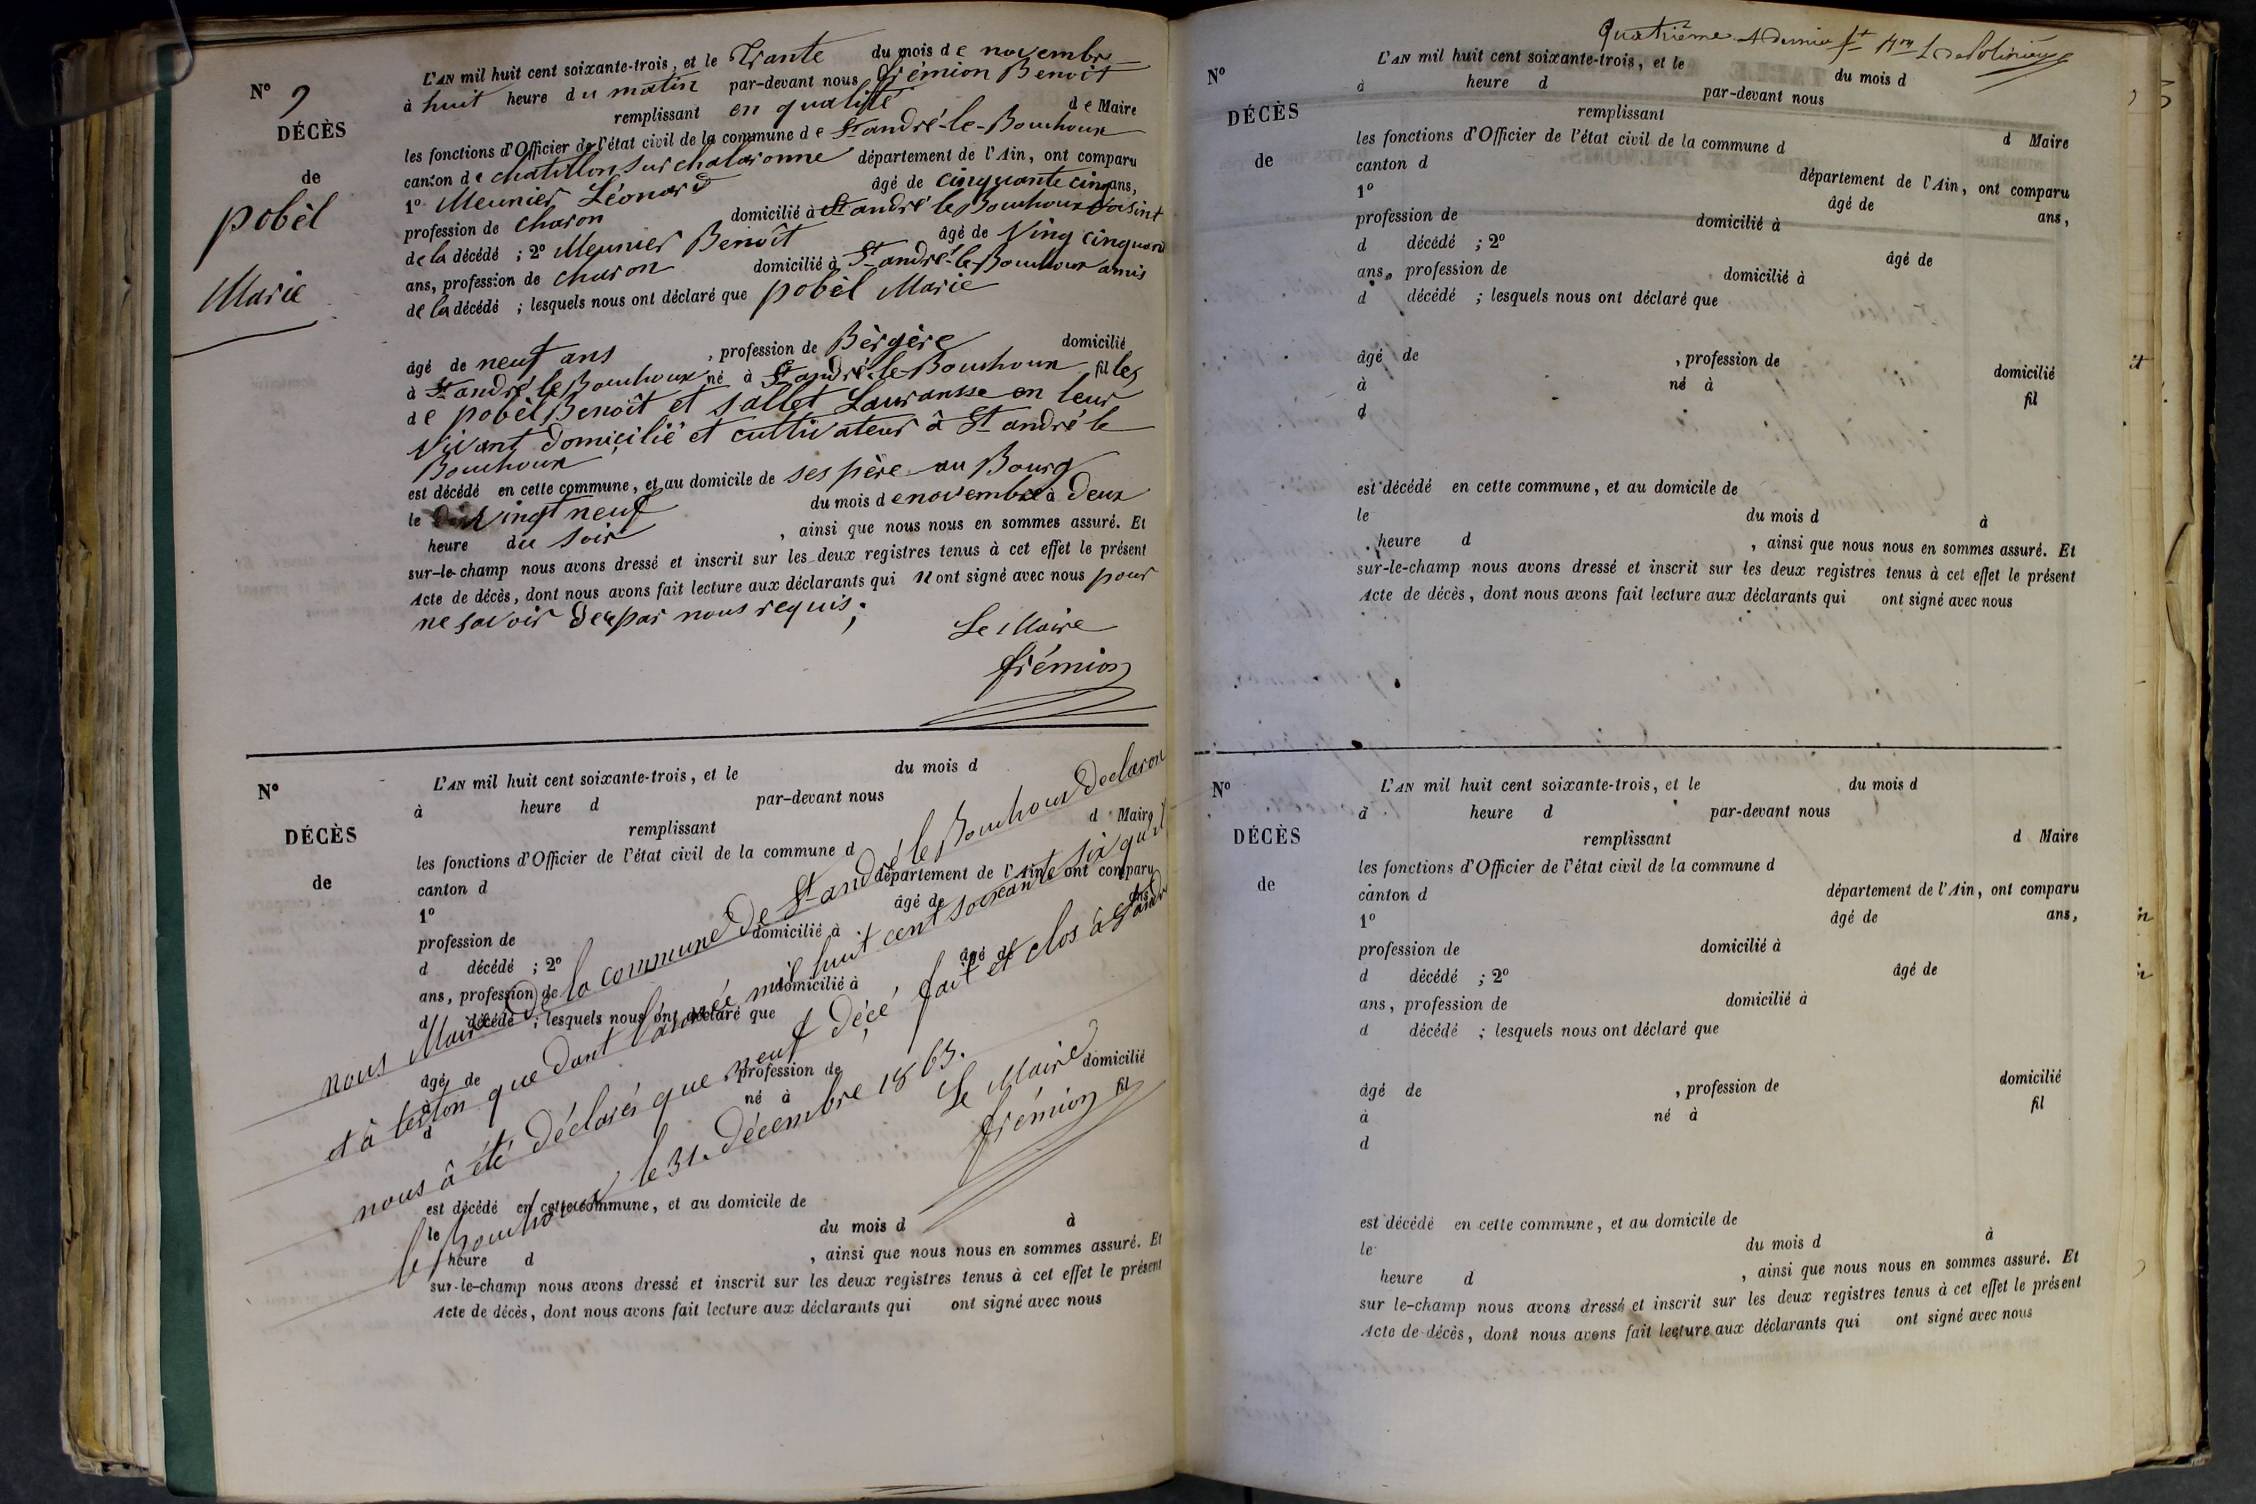 N° 9
DÉCÈS
de
pobèl
Marie
L'AN mil huit cent soixante-trois, et le Trante du mois de novembre
à huit heure du matin par-devant nous frémion Benoit
remplissant en qualité de Maire
les fonctions d'Officier de l'état civil de la commune de St andré-le-Bouchoux
canton de chatillon sur chalaronne département de l'Ain, ont comparu
1° Meunier Léonard âgé de cinquante cinq ans,
profession de charon domicilié à St andré le Bouchoux voisint
de la décédé ; 2° Meunier Benoît âgé de Ving cinq
ans, profession de charon domicilié à St andré-le-Bouchoux amis
de la décédé ; lesquels nous ont déclaré que pobèl Marie
âgé de neuf ans , profession de Bèrgère domicilié
à St andré le Bouchoux né à St andré-le-Bouchoux filles
de pobèl Benoît et Sallet Lauransse en leur
Vivant domicilié et cultivateur à St andré le
Bouchoux
est décédé en cette commune, et au domicile de ses père au Bourg
le Vingt neuf du mois de novembre à Deux
heure du soir , ainsi que nous nous en sommes assuré. Et
sur-le-champ nous avons dressé et inscrit sur les deux registres tenus à cet effet le présent
Acte de décès, dont nous avons fait lecture aux déclarants qui n ont signé avec nous pour
ne savoir de par nous requis;
Le Maire
frémion
N°
DÉCÈS
de
L'AN mil huit cent soixante-trois, et le du mois d
à heure d par-devant nous
remplissant d Maire
les fonctions d'Officier de l'état civil de la commune d
canton d département de l'Ain, ont comparu
1° âgé de ans,
profession de domicilié à
d décédé ; 2° âgé de
ans, profession de domicilié à
d décédé ; lesquels nous ont déclaré que
âgé de , profession de domicilié
à né à fil
d
nous Maire de la commune de St andré le Bouchoux declaron
et à teston que dant l'année mil huit cent soixante six qu'il
nous à été déclarés que neuf décé fait et clos à St andré
le Bouchoux le 31. décembre 1863.
Le Maire
frémion
est décédé en cette commune, et au domicile de
le du mois d à
heure d , ainsi que nous nous en sommes assuré. Et
sur-le-champ nous avons dressé et inscrit sur les deux registres tenus à cet effet le présent
Acte de décès, dont nous avons fait lecture aux déclarants qui ont signé avec nous
Quatrième & dernier
N°
DÉCÈS
de
L'AN mil huit cent soixante-trois, et le du mois d
à heure d par-devant nous
remplissant d Maire
les fonctions d'Officier de l'état civil de la commune d
canton d département de l'Ain, ont comparu
1° âgé de ans,
profession de domicilié à
d décédé ; 2° âgé de
ans, profession de domicilié à
d décédé ; lesquels nous ont déclaré que
âgé de , profession de domicilié
à né à fil
d
est décédé en cette commune, et au domicile de
le du mois d à
heure d , ainsi que nous nous en sommes assuré. Et
sur-le-champ nous avons dressé et inscrit sur les deux registres tenus à cet effet le présent
Acte de décès, dont nous avons fait lecture aux déclarants qui ont signé avec nous
N°
DÉCÈS
de
L'AN mil huit cent soixante-trois, et le du mois d
à heure d par-devant nous
remplissant d Maire
les fonctions d'Officier de l'état civil de la commune d
canton d département de l'Ain, ont comparu
1° âgé de ans,
profession de domicilié à
d décédé ; 2° âgé de
ans, profession de domicilié à
d décédé ; lesquels nous ont déclaré que
âgé de , profession de domicilié
à né à fil
d
est décédé en cette commune, et au domicile de
le du mois d à
heure d , ainsi que nous nous en sommes assuré. Et
sur le-champ nous avons dressé et inscrit sur les deux registres tenus à cet effet le présent
Acte de décès, dont nous avons fait lecture aux déclarants qui ont signé avec nous